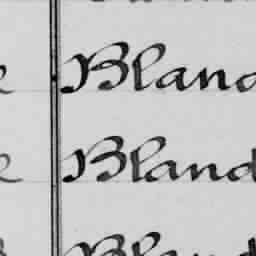 Bland
Bland
Bland